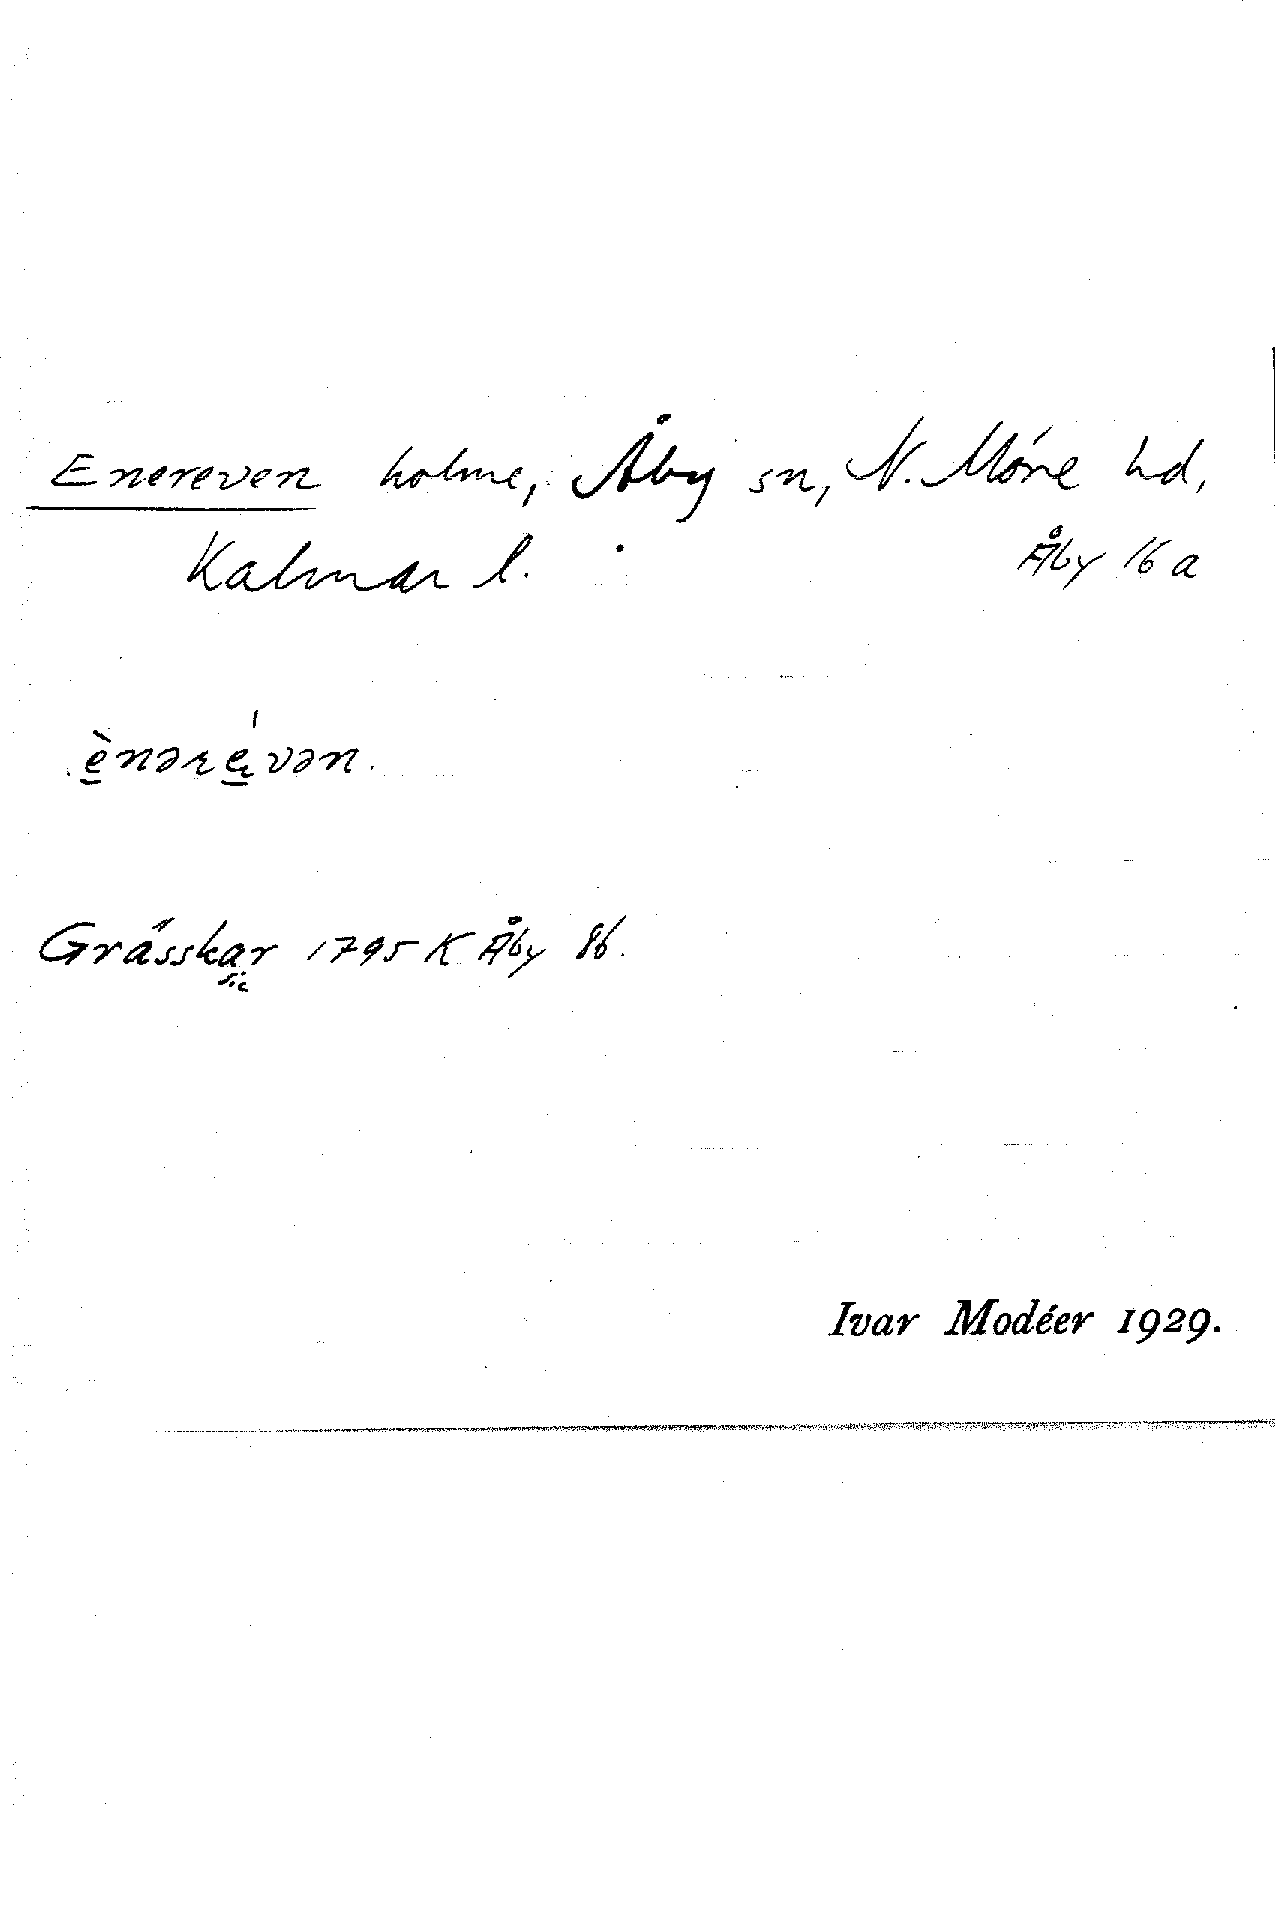 Enereven holme, Åby sn, N. Möre hd,
Kalmar l. Åby 16 a
ènəre̱vən.
Grässkar 1795 K Åby 86.
sic
Ivar Modéer 1929.